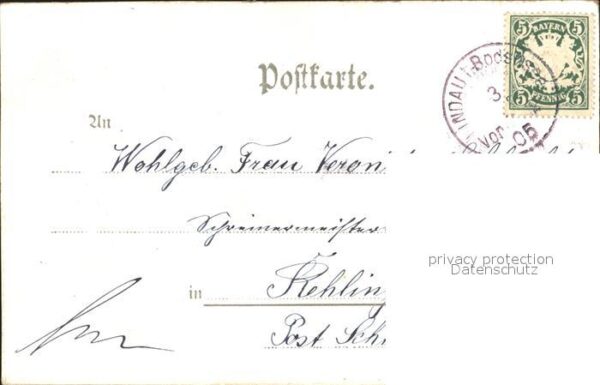 Postkarte.
5 BAYERN 5
5 PFENNIG 5
LINDAU i Bodensee
3
Vor 05
An
Wohlgeb. Frau Veroni
Schreinermeister
privacy protection
Datenschutz
in Kehlin
Post Sch